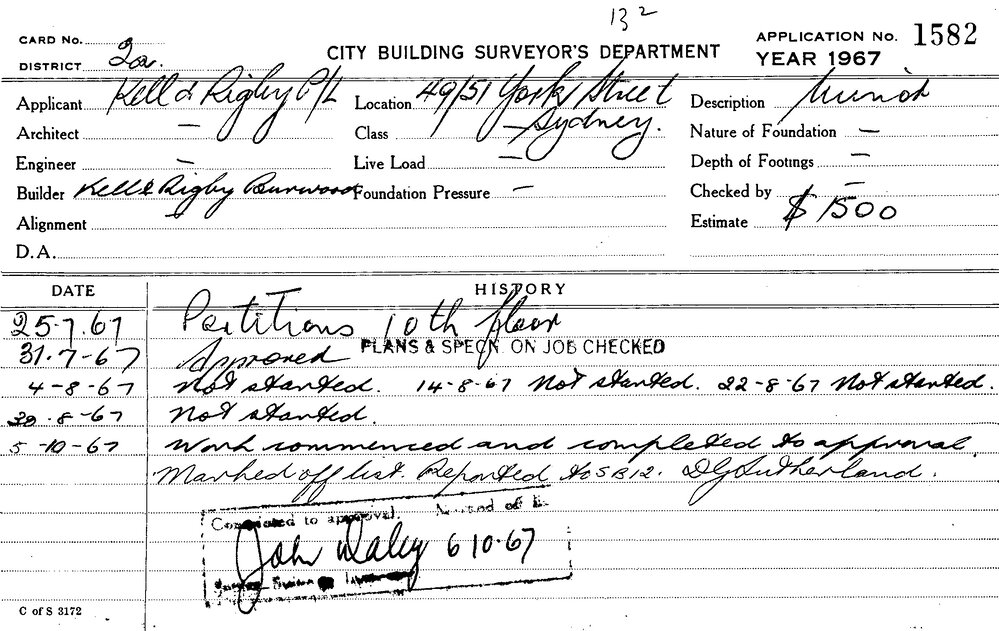 13 2
CARD No. APPLICATION No. 1582
DISTRICT 2a. CITY BUILDING SURVEYOR'S DEPARTMENT YEAR 1967
Applicant Kell & Rigby P/L Location 49/51 York Street Description Minor
Architect — Class — Sydney. Nature of Foundation —
Engineer — Live Load — Depth of Footings —
Builder Kell & Rigby Burwood Foundation Pressure — Checked by —
Alignment — Estimate $1500
D.A.
DATE HISTORY
25.7.67 Partitions 10th floor
31.7-67 Approved PLANS & SPECN. ON JOB CHECKED
4-8-67 Not started. 14-8-67 Not started. 22-8-67 Not started.
30-8-67 Not started.
5-10-67 Work commenced and completed to approval.
Marked off list. Reported to SB12. DG Sutherland.
Completed to approval. Marked off
John Daley 6 10-67
C of S 3172